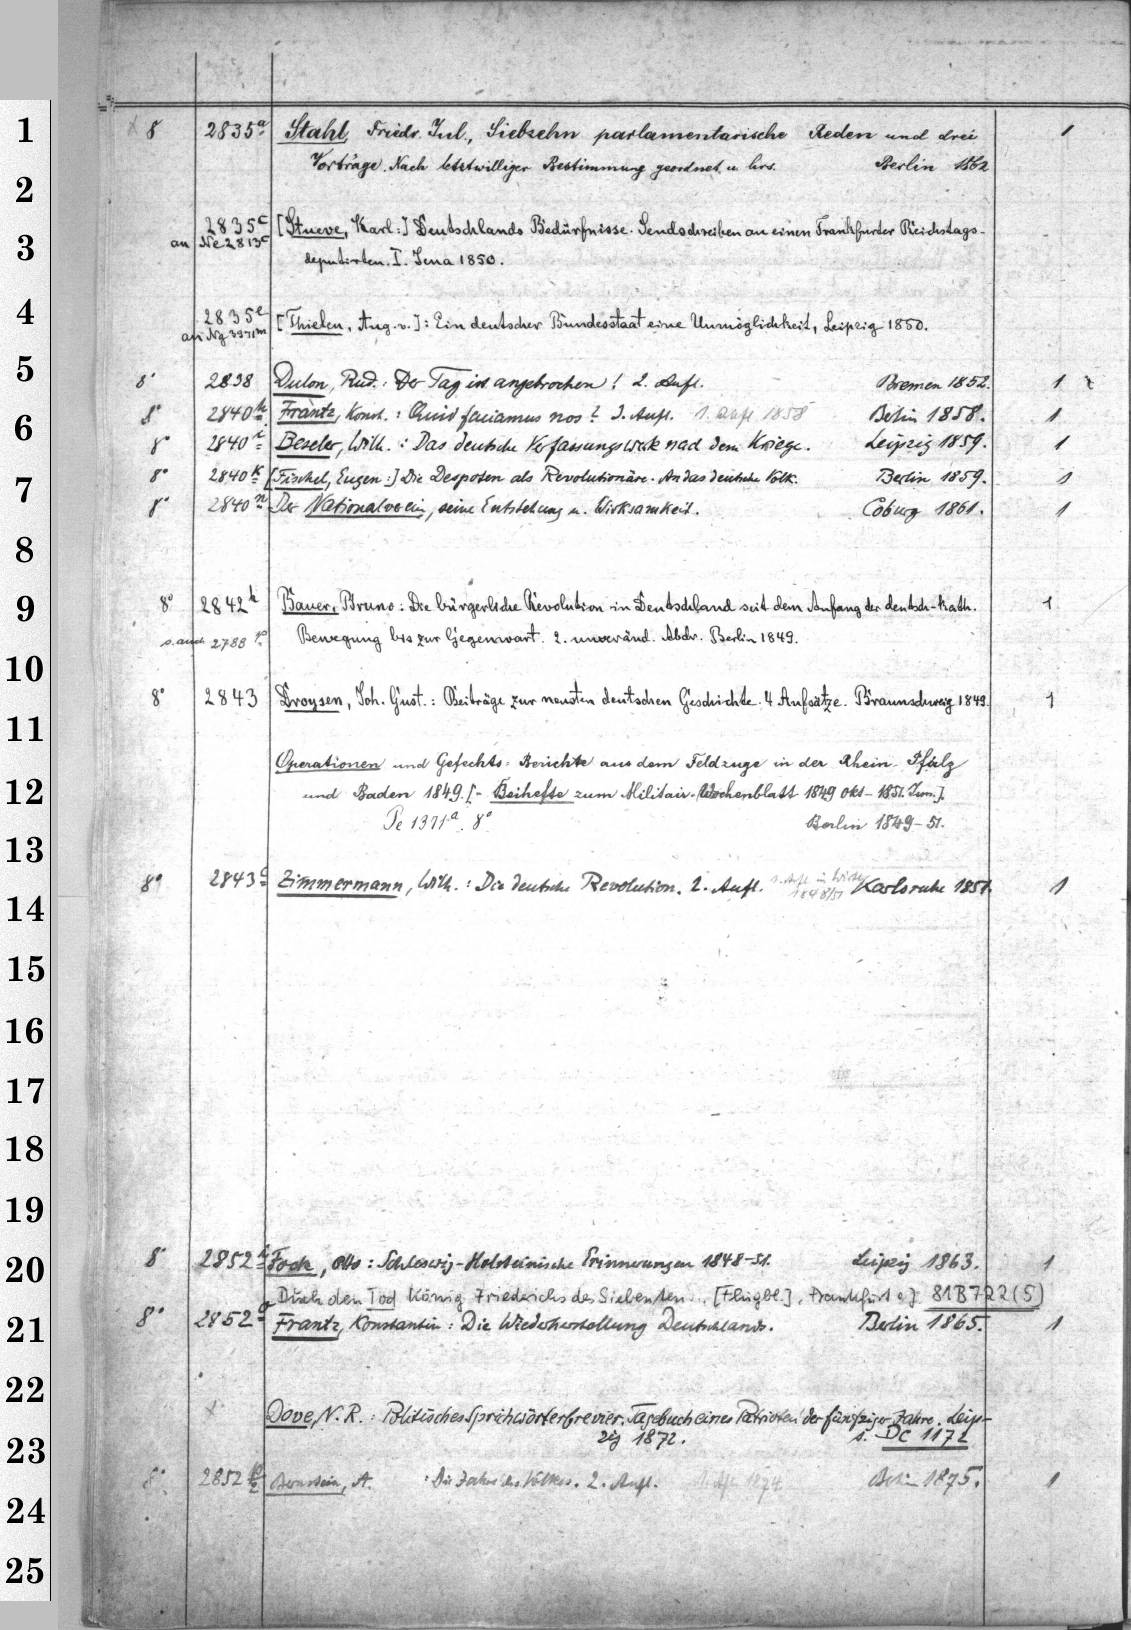 1
8 2835a Stahl, Friedr. Jul., Siebzehn parlamentarische Reden und drei 1
Vorträge. Nach letztwilliger Bestimmung geordnet u. hrs. Berlin 1862
2
2835c [Stueve, Karl:] Deutschlands Bedürfnisse. Sendschreiben an einen Frankfurter Reichstags-
3
an Ne 2813c
deputirten. I. Jena 1850.
4
2835e [Thielen, Aug. v.]: Ein deutscher Bundesstaat eine Unmöglichkeit, Leipzig 1850.
an Ng 3971m
5
8° 2838 Dulon, Rud.: Der Tag ist angebrochen! 2. Aufl. Bremen 1852. 1
8° 2840h Frantz, Konst.: Quid faciamus nos? 2. Aufl. 1. Aufl 1858 Berlin 1858. 1
6
8° 2840i Beseler, Wilh.: Das deutsche Verfassungswerk nach dem Kriege. Leipzig 1859. 1
8° 2840k [Fischel, Eugen:] Die Despoten als Revolutionäre. An das deutsche Volk. Berlin 1859. 1
7
8° 2840n Der Nationalverein, seine Entstehung u. Wirksamkeit. Coburg 1861. 1
8
9
8° 2842h Bauer, Bruno: Die bürgerliche Revolution in Deutschland seit dem Anfang der deutsch-kath. 1
s. auch 2788 Bewegung bis zur Gegenwart. 2. unveränd. Abdr. Berlin 1849.
10
8° 2843 Droysen, Joh. Gust.: Beiträge zur neusten deutschen Geschichte. 4 Aufsätze. Braunschweig 1849. 1
11
Operationen und Gefechts-Berichte aus dem Feldzuge in der Rhein-Pfalz
12
und Baden 1849. [- Beihefte zum Militair-Wochenblatt 1849 Okt - 1851. Jun.].
Pe 1371a. 8° Berlin 1849-51.
13
8° 2843c Zimmermann, Wilh.: Die deutsche Revolution. 2. Aufl. 1848/51 Karlsruhe 1851. 1
14
15
16
17
18
19
20
8° 2852i Fock, Otto: Schleswig-Holsteinische Erinnerungen 1848-51. Leipzig 1863. 1
Durch den Tod König Friederichs des Siebenten... [Flugbl.], Frankfurt o.J. 81B722(5)
21
8° 2852q Frantz, Konstantin: Die Wiederherstellung Deutschlands. Berlin 1865. 1
22
Dove, N. R.: Politisches Sprichwörterbrevier. Tagebuch eines Patrioten der fünfziger Jahre. Leip-
23
zig 1872. s. DC 1172
8° 2852 Bernstein, A. : Die Jahre des Volkes. 2. Aufl. 1. Aufl 1874 Berlin 1875. 1
24
25